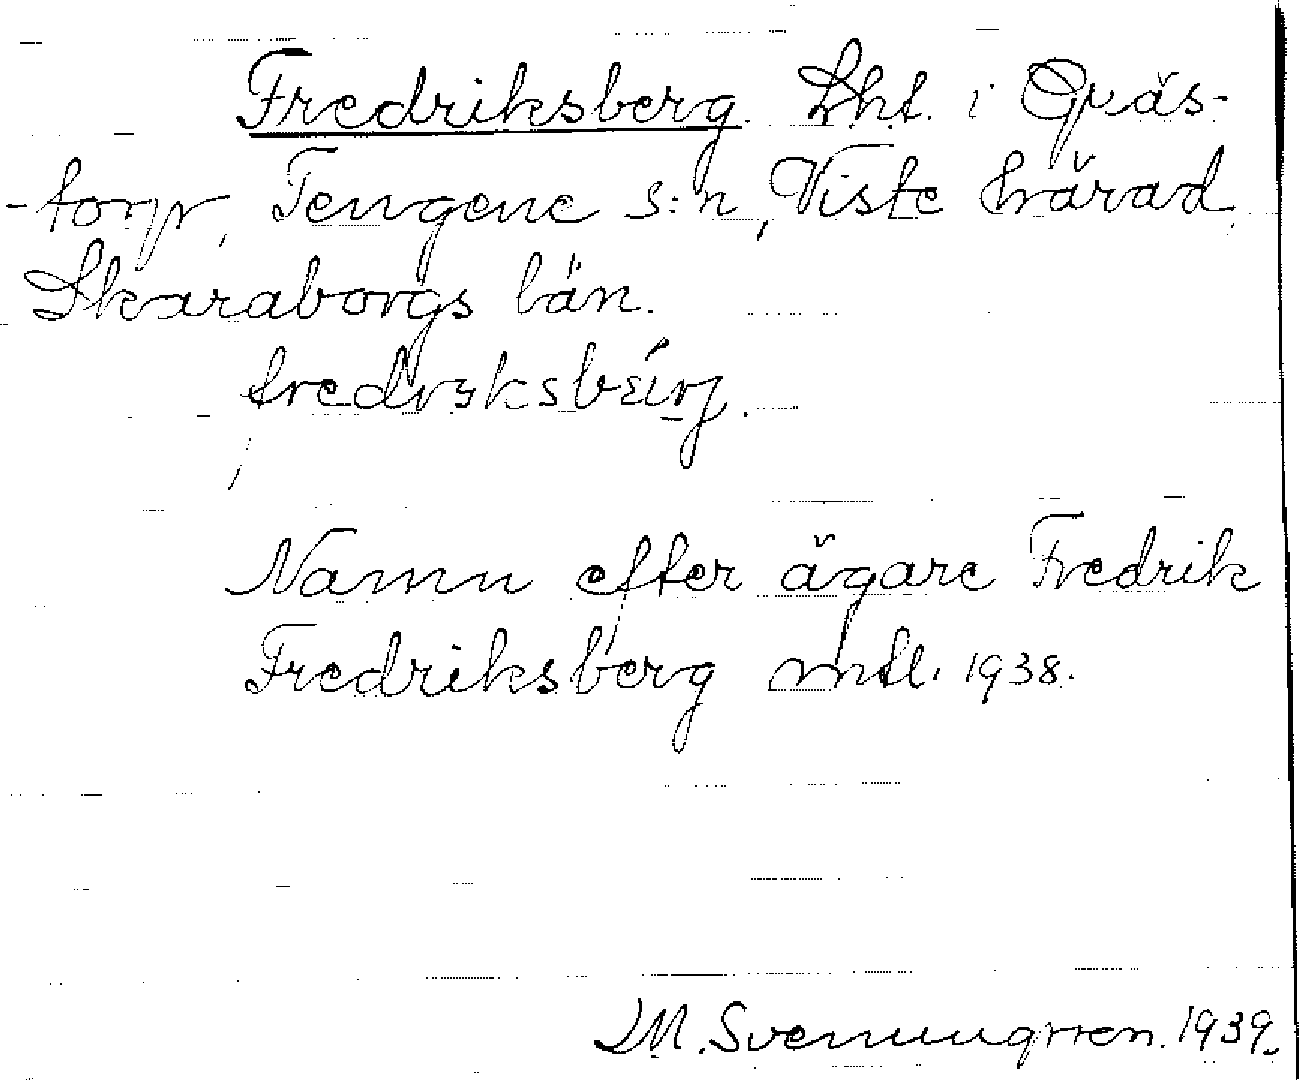 Fredriksberg. Lht. i Gräs-
-torp, Tengene s:n, Viste härad,
Skaraborgs län.
Namn efter ägare Fredrik
Fredriksberg mtl. 1938.
1939.